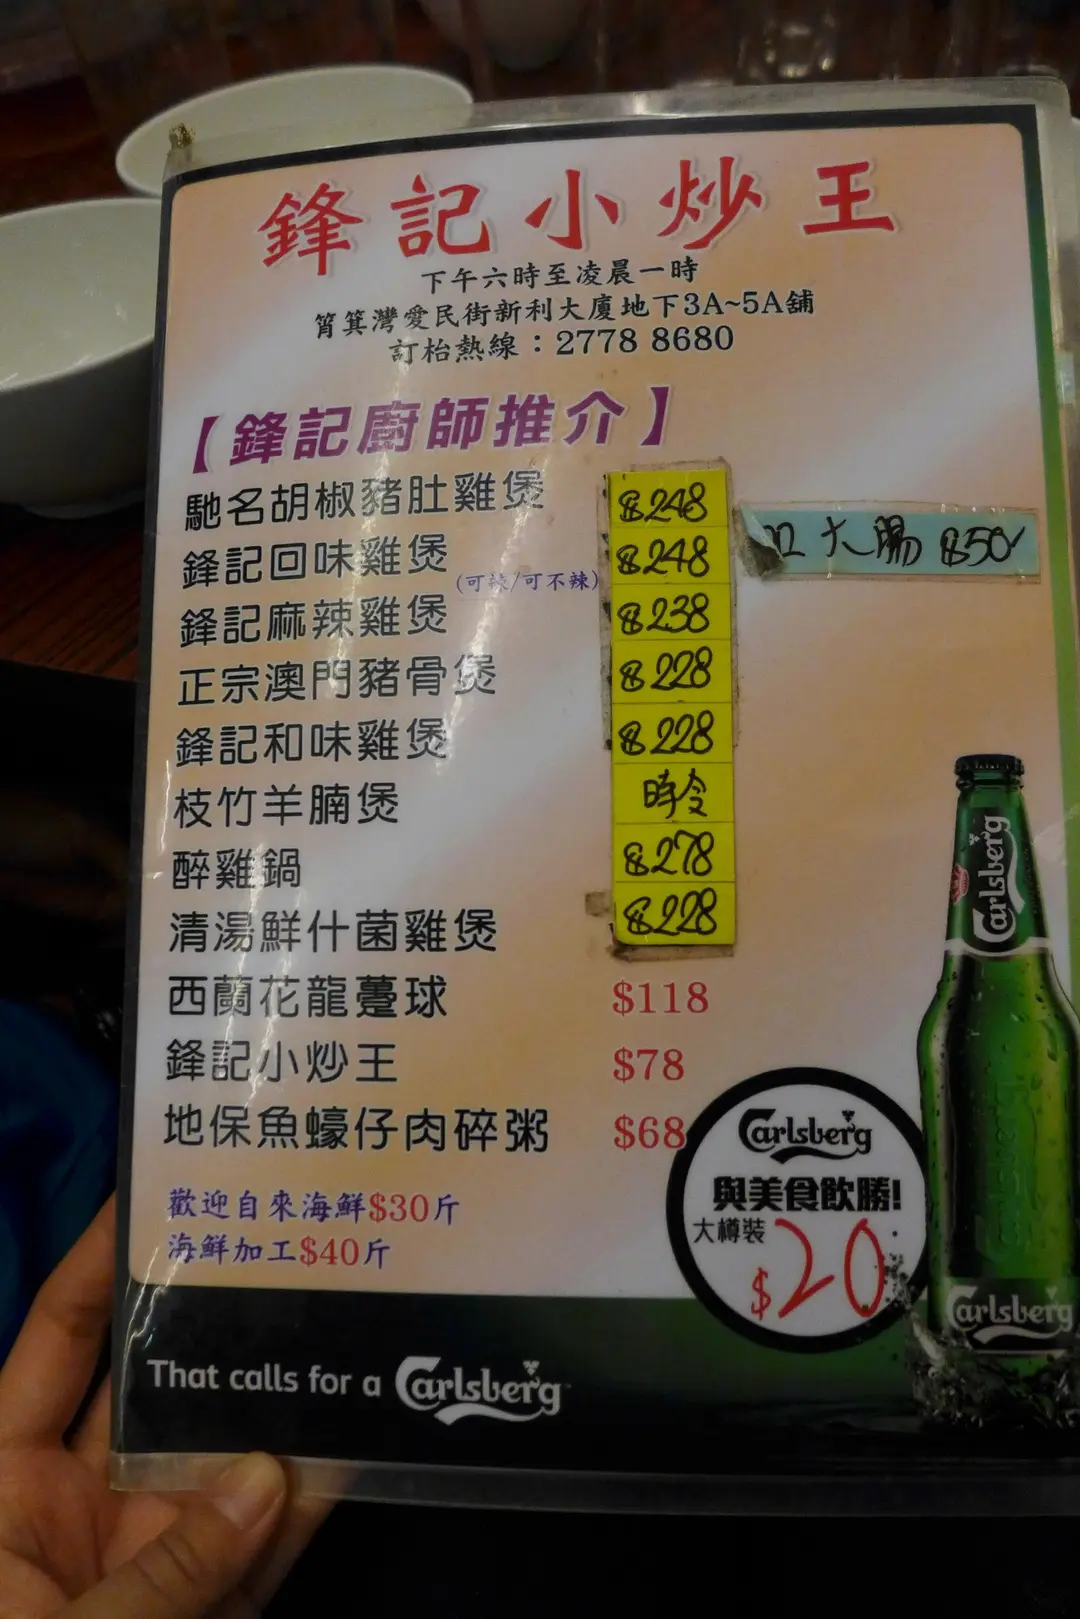 鋒記小炒王
下午六時至凌晨一時
筲箕灣愛民街新利大廈地下3A~5A舖
訂枱熱線：2778 8680
【鋒記廚師推介】
馳名胡椒豬肚雞煲 $248 大腸 $50
鋒記回味雞煲 (可辣/可不辣) $248
鋒記麻辣雞煲 $238
正宗澳門豬骨煲 $228
鋒記和味雞煲 $228
枝竹羊腩煲 時令
醉雞鍋 $278
清湯鮮什菌雞煲 $228
西蘭花龍躉球 $118
鋒記小炒王 $78
地保魚蠔仔肉碎粥 $68
歡迎自來海鮮$30斤
海鮮加工$40斤
Carlsberg
與美食飲勝!
大樽裝
$20
Carlsberg
Carlsberg
That calls for a Carlsberg